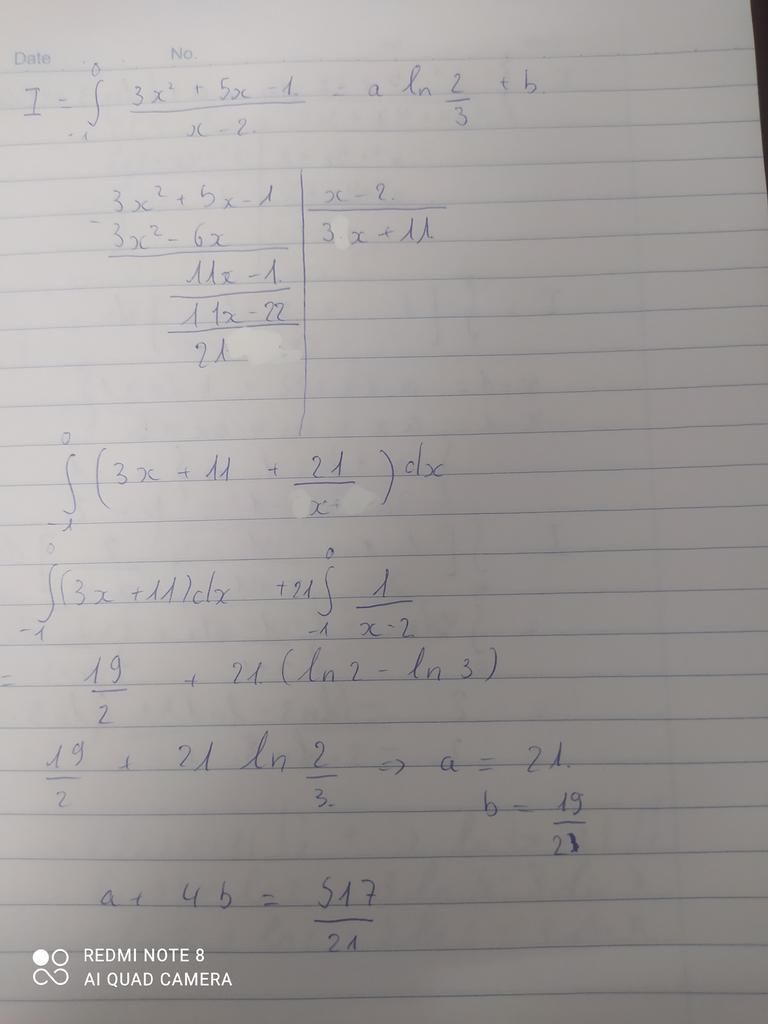 Date No.
I = ∫_{-1}^{0} (3x² + 5x - 1)/(x - 2) = a ln 2/3 + b
3x² + 5x - 1 | x - 2
- 3x² - 6x | 3x + 11
11x - 1
11x - 22
21
∫_{-1}^{0} (3x + 11 + 21/x) dx
∫_{-1}^{0} (3x + 11) dx + 21 ∫_{-1}^{0} 1/(x - 2)
= 19/2 + 21 (ln 2 - ln 3)
19/2 + 21 ln 2/3 => a = 21
b = 19/21
a + 4b = 517/21
REDMI NOTE 8
AI QUAD CAMERA